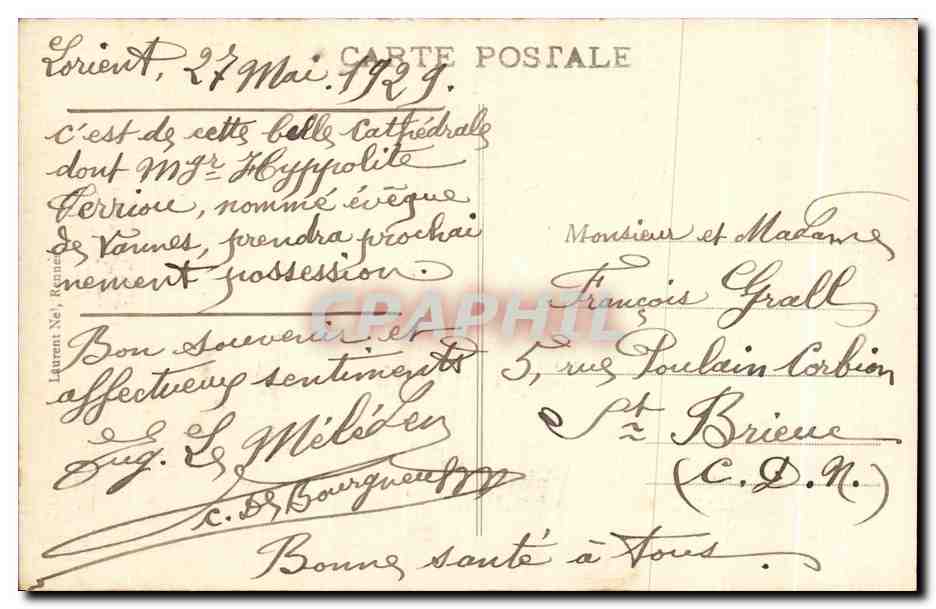 CARTE POSTALE
Lorient, 27 Mai. 1929.
c'est de cette belle Cathédrale
dont Mgr Hyppolite
Terriou, nommé évêque
de Vannes, prendra prochai
nement possession.
Bon souvenir et
affectueux sentiments
Eug. Le Méléder
C. De Bourgneuf
Bonne santé à tous.
Monsieur et Madame
François Grall
5, rue Poulain Corbion
St Brieuc
(C. D. N.)
Laurent Nel, Rennes
CPAPHIL